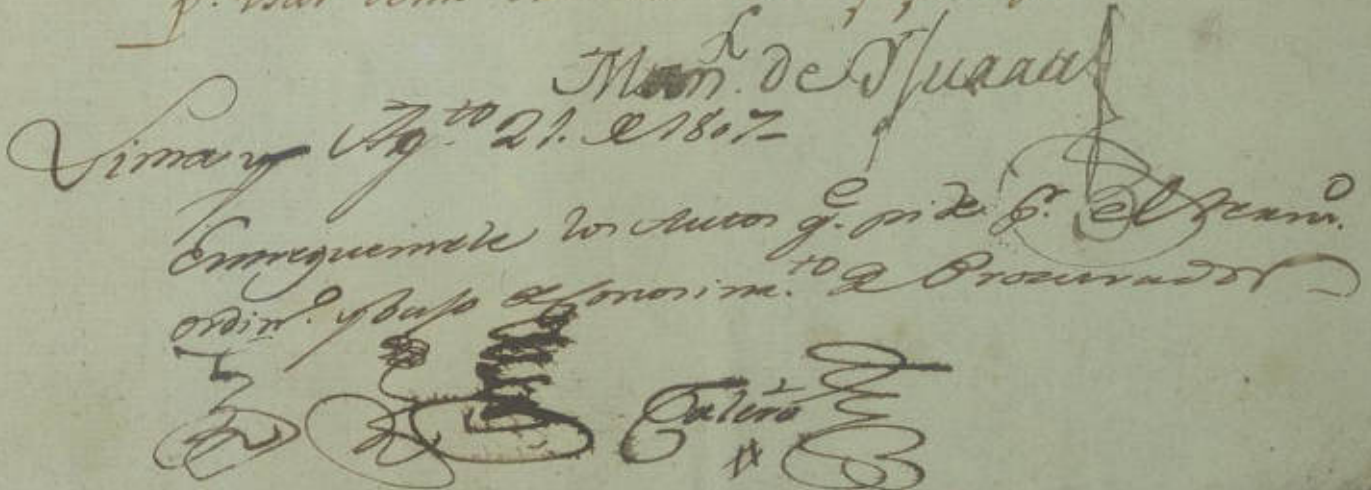 Man.l de
Lima y Ag.to 21. de 1807
Entreguensele los Autos q.e pide p.r el termno.
ordin.o y bajo de conosim.to de Procurador
Calero